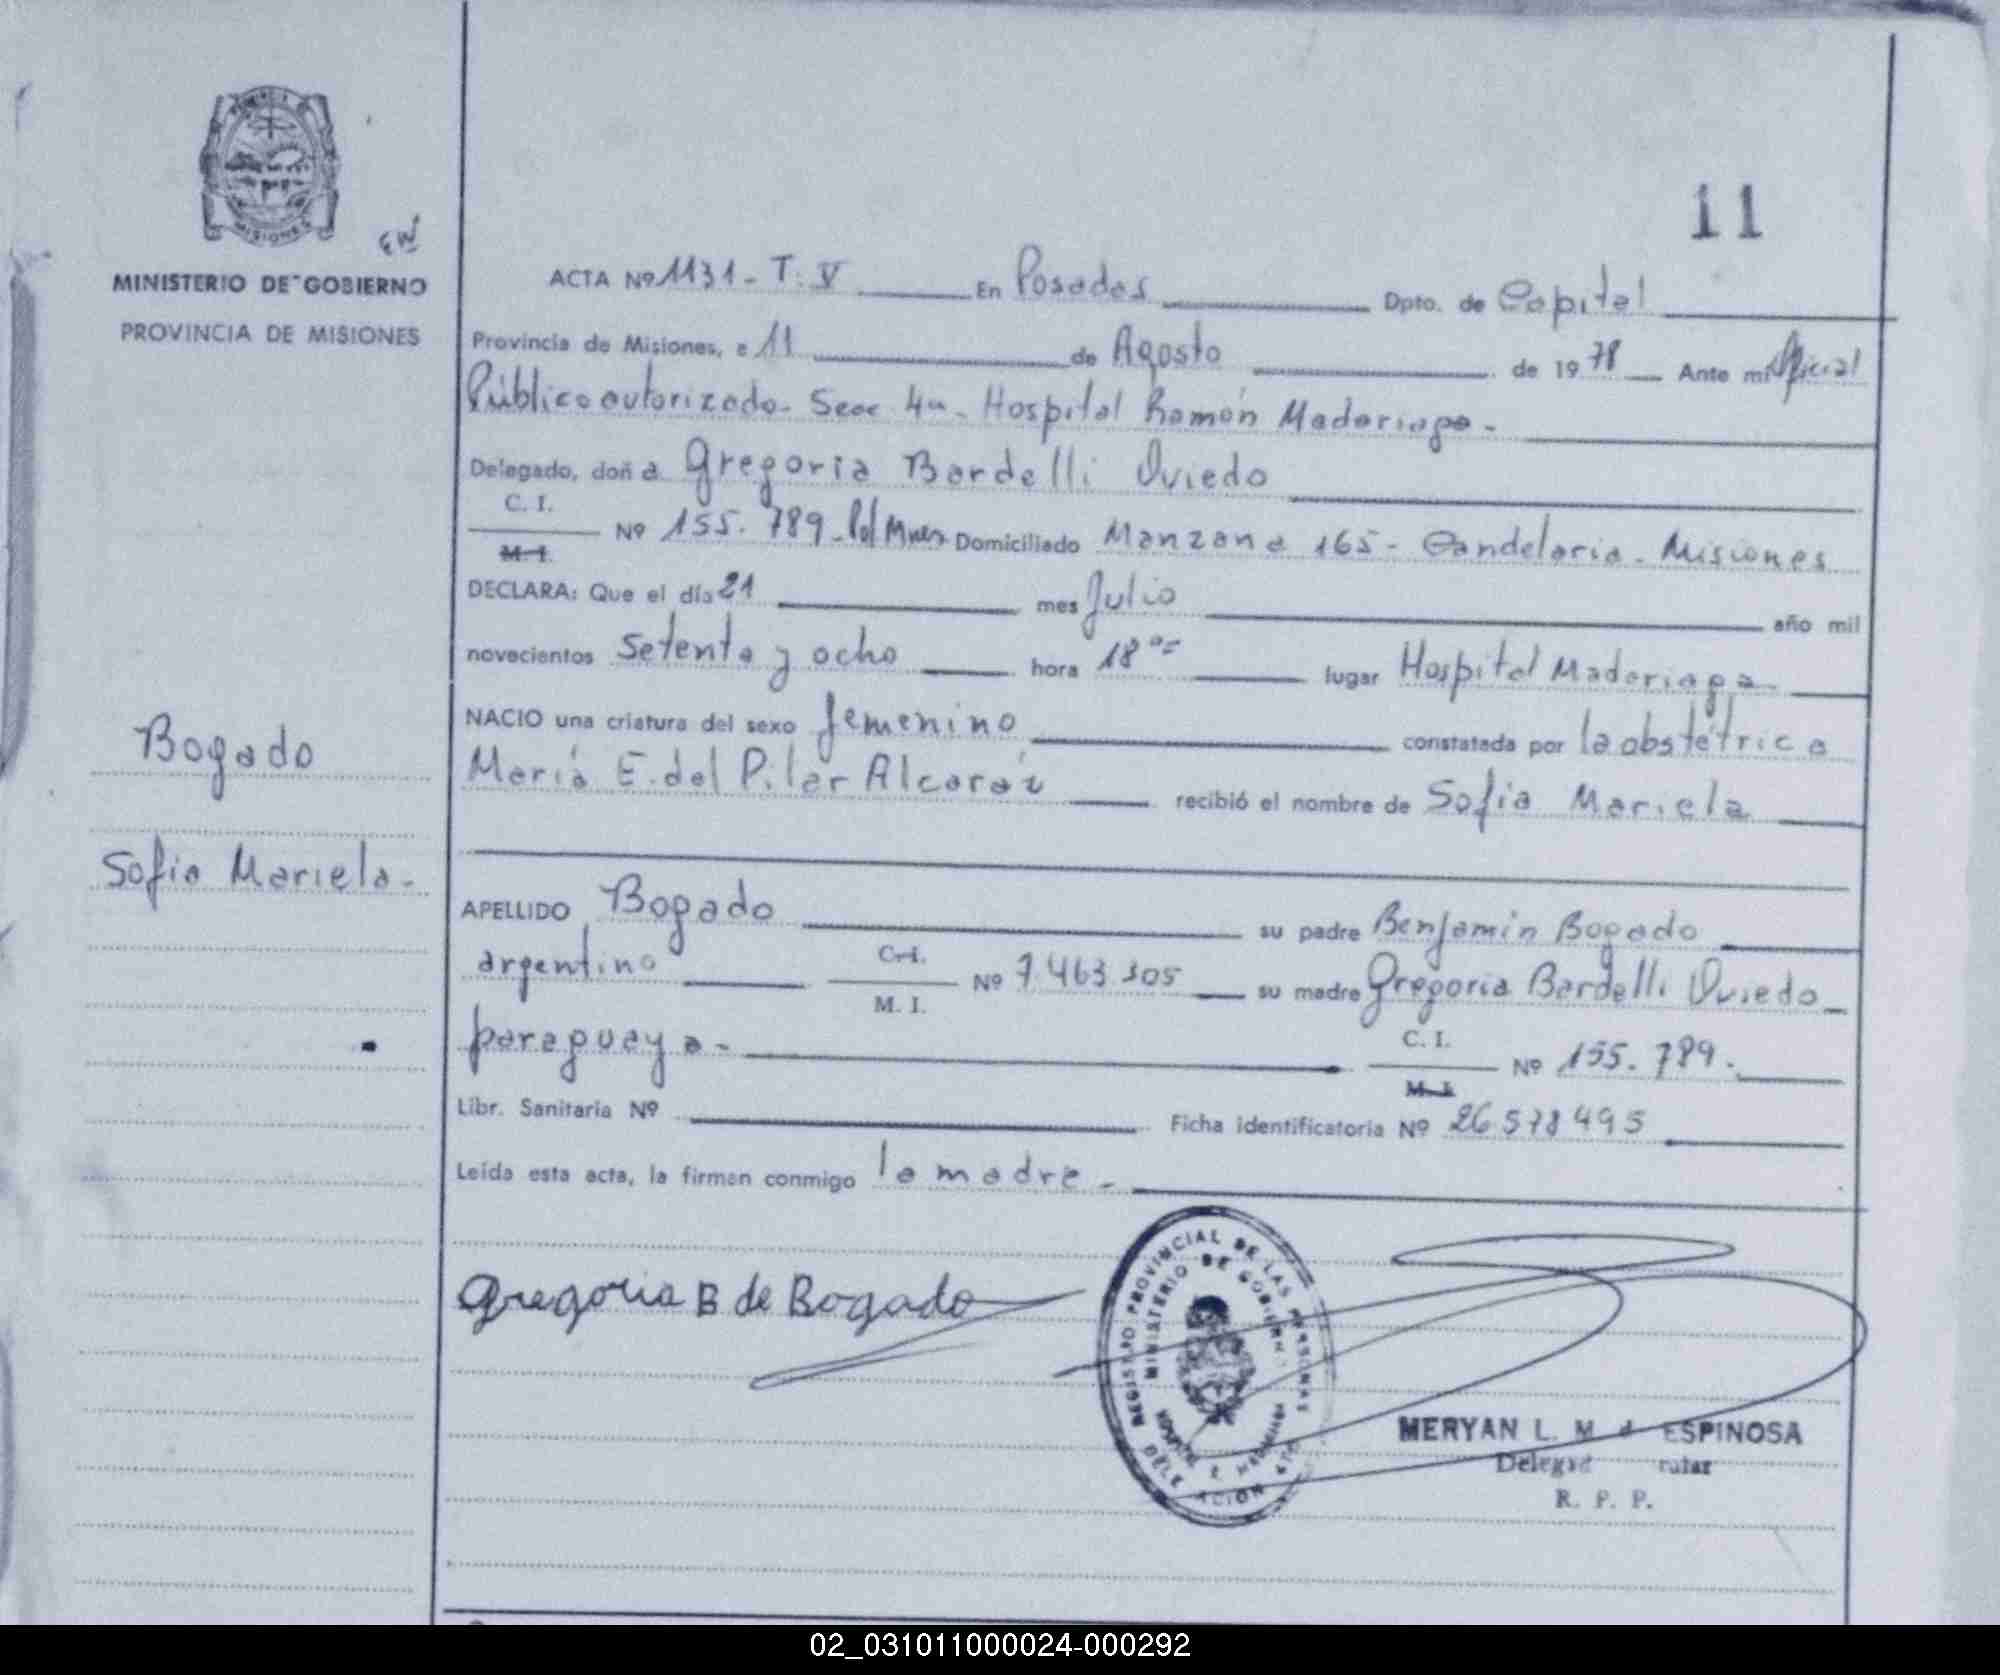 PROVINCIA DE
MISIONES
MINISTERIO DE GOBIERNO
PROVINCIA DE MISIONES
Bogado
Sofia Mariela-
11
ACTA Nº 1131 - T. V En Posadas Dpto. de Capital
Provincia de Misiones, a 11 de Agosto de 1978 Ante mi Oficial
Público autorizado. Secc 4a. Hospital Ramón Madariaga-
Delegado, doña Gregoria Bardelli Oviedo
C. I.
Nº 155. 789 - Pol Mnes Domiciliado Manzana 165 - Candelaria - Misiones
M. I.
DECLARA: Que el día 21 mes Julio año mil
novecientos setenta y ocho hora 18 oo= lugar Hospital Madariaga
NACIO una criatura del sexo femenino constatada por la obstétrica
María E. del Pilar Alcaráz recibió el nombre de Sofia Mariela
APELLIDO Bogado su padre Benjamín Bogado
argentino C. I. Nº 7.463.305 su madre Gregoria Bardelli Oviedo
M. I.
paraguaya - C. I. Nº 155. 789.
M. I.
Libr. Sanitaria Nº Ficha identificatoria Nº 26 578 495
Leída esta acta, la firman conmigo la madre -
Gregoria B de Bogado
REGISTRO PROVINCIAL DE LAS PERSONAS
MINISTERIO DE GOBIERNO
MERYAN L. M d ESPINOSA
R. P. P.
02_031011000024-000292